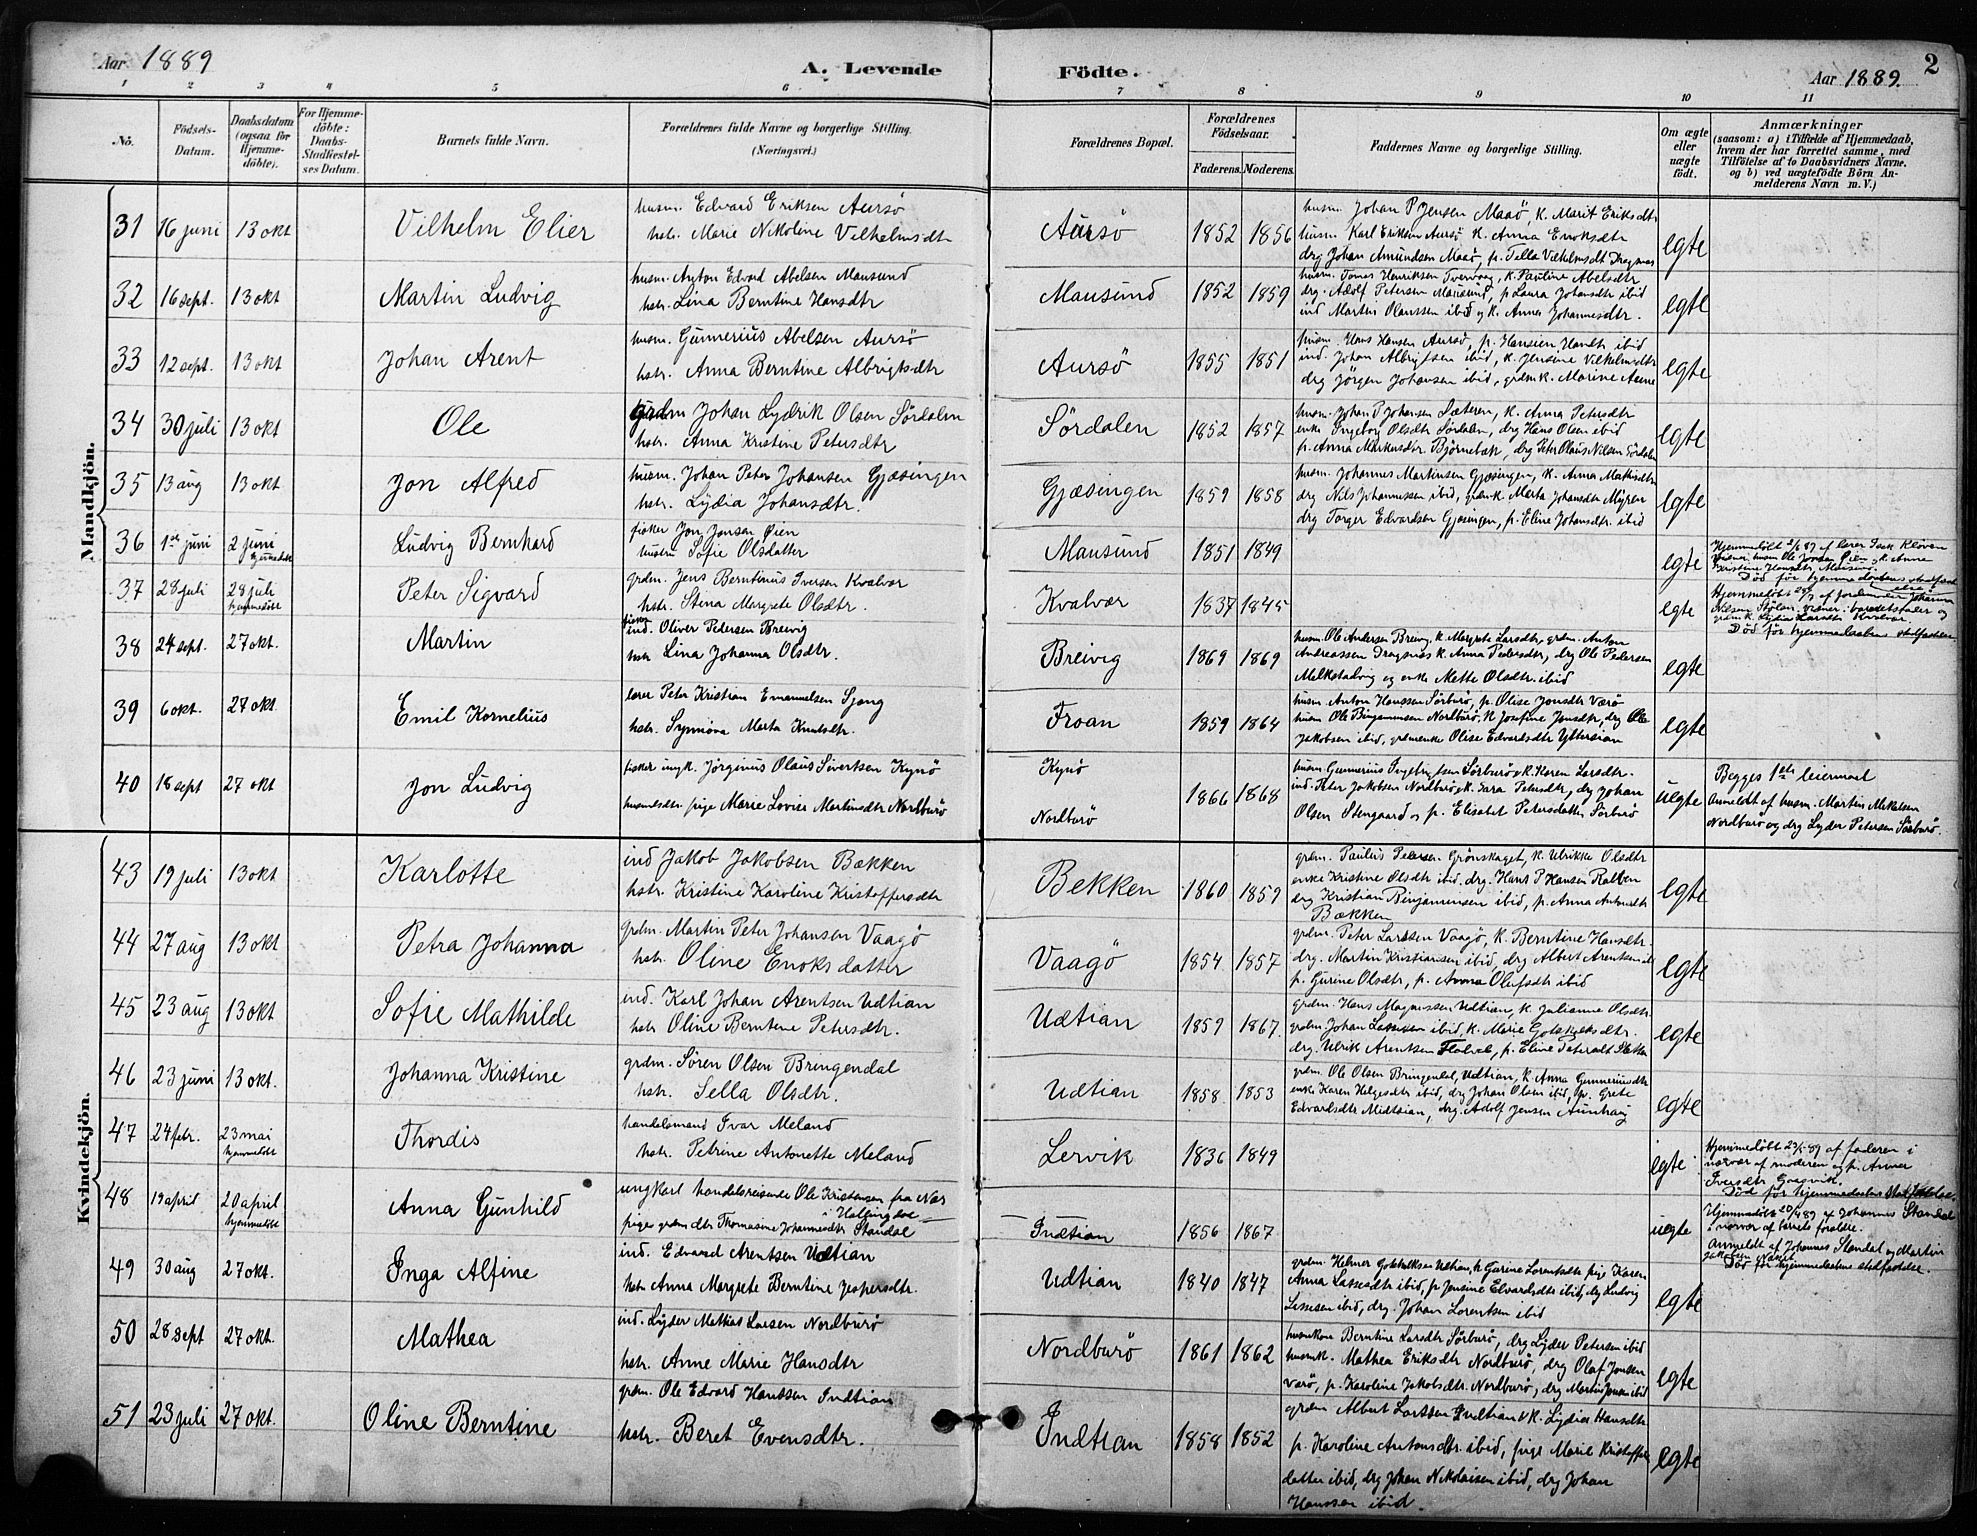 Aar 1889
A. Levende Födte.
Aar 1889. 2
1 2 3 4 5 6 7 8 9 10 11
No.
Födsels-Datum.
Daabsdatum (ogsaa for Hjemmedöbte).
For Hjemmedöbte: Daabs-Stadfæstelses Datum.
Barnets fulde Navn.
Forældrenes fulde Navne og borgerlige Stilling. (Næringsvei.)
Forældrenes Bopæl.
Forældrenes Födselsaar.
Faderens. Moderens.
Faddernes Navne og borgerlige Stilling.
Om ægte eller uægte födt.
Anmærkninger
(saasom: a) i Tilfælde af Hjemmedaab, hvem der har forrettet samme, med Tilföielse af to Daabsvidners Navne, og b) ved uægtefödte Börn Anmelderens Navn m. V.)
Mandkjön.
31 16 juni 13 okt Vilhelm Elier
husm. Edvard Eriksen Aursö
hstr. Marie Nikoline Vilhelmsdtr
Aursö 1852 1856
husm. Johan P Jensen Maaö k. Marit Eriksdtr
husm Karl Eriksen Aursö k. Anna Enoksdtr
drg Johan Amundsen Maaö, p. Tella Vilhelmsdt Dragsnes
egte
32 16 sept. 13 okt Martin Ludvig
husm. Anton Edvard Abelsen Mausund
hstr. Lina Berntine Hansdtr
Mausund 1852 1859
husm. Tomas Henriksen Tvervaag, k. Pauline Abelsdtr
drg. Adolf Petersen Mausund, p Laura Johansdtr ibid
ind Martin Olaussen ibid og k. Anna Johannesdtr.
egte
33 12 sept. 13 okt Johan Arent
husm. Gunnerius Abelsen Aursö
hstr. Anna Berntine Albrigtsdtr
Aursö 1855 1851
husm. Hans Hansen Aursö, p. Hansine Hansdtr ibid
ind. Johan Albrigtsen ibid, k. Jensine Vilhelmsdtr
drg Jörgen Johansen ibid, grdmk. Marine Aune
egte
34 30 juli 13 okt Ole
grdm Johan Lydrik Olsen Sördalen
hstr. Anna Kristine Petersdtr
Sördalen 1852 1857
husm. Johan P Johansen Sæteren, k. Anna Petersdtr
enke Ingeborg Olsdtr Sördalen, drg Hans Olsen ibid
p. Anna Markusdtr Björnebak, drg Peter Olaus Nilsen Sördalen
egte
35 13 aug 13 okt Jon Alfred
husm. Johan Peter Johansen Gjæsingen
hstr. Lydia Johansdtr.
Gjæsingen 1859 1858
husm. Johannes Martinsen Gjæsingen, k. Anna Mathisdtr
drg Nils Johannessen ibid, grdmk. Marta Johansdtr Myren
drg Torger Edvardsen Gjæsingen, p. Eline Johansdtr. ibid
egte
36 1ste juni 2 juni hjemmedöbt Ludvig Bernhard
fisker Jon Jonsen Øien
hustru Sofie Olsdatter
Mausund 1851 1849
egte
Hjemmedöbt 2/6 89 af lærer Isak Kløven
Kristine Hansdtr, Mausund.
Död før hjemmedaabens stadfæst
37 28 juli 28 juli hjemmedöbt Peter Sigvard
grdm. Jens Berntinus Iversen Kvalvær
hstr. Stina Margrete Olsdtr.
Kvalvær 1837 1845
egte
Hjemmedöbt 28/7 af jordemoder Johanna
grdm k. Lydia Larsdtr Kvalvær.
Död før hjemmedaabens stadfæstelse
38 24 sept. 27 okt. Martin
fisker
ind. Oliver Petersen Breivig
hstr Lina Johanna Olsdtr.
Breivig 1869 1869
husm Ole Andersen Breivig, k. Margrete Larsdtr, grdm. Anton
Andreassen Dragsnes k. Anna Pedersdtr, drg Ole Pedersen
Melkstadvig og enke Mette Olsdtr. ibid
egte
39 6 okt. 27 okt. Emil Kornelius
lærer Peter Kristian Emanuelsen Sjong
hstr. Synnöva Marta Knutsdtr.
Froan 1859 1864
husm Anton Hanssen Sörburö, p. Olise Jonsdtr Værö
husm Ole Benjaminsen Nordburö, k Josefine Jonsdtr, drg Ole
Jakobsen ibid, grdmenke Olise Edvardsdtr Yttersian
egte
40 18 sept 27 okt Jon Ludvig
fisker ungk. Jörginus Olaus Sivertsen Kynö
husmdsdtr. pige Marie Lovise Martinsdtr Nordburö
Kynö
Nordburö
1866 1868
husm Gunnerius Ingebrigtsen Sörburö k. Karen Larsdtr.
ind. Peter Jakobsen Nordburö, k. Sara Petersdtr, drg Johan
Olsen Stengaard og p. Elisabet Petersdatter Sörburö
uegte
Begges 1ste leiermaal
Anmeldt af husm. Martin Mikalsen
Nordburö og drg Lyder Petersen Sörburö.
Kvindekjön.
43 19 juli 13 okt Karlotte
ind Jakob Jakobsen Bækken
hstr. Kristine Karoline Kristoffersdtr
Bekken 1860 1859
grdm. Paulus Pedersen Grönskaget, k. Ulrikke Olsdtr
enke Kristine Olsdtr ibid, drg. Hans P Hansen Rabben
drg Kristian Benjaminsen ibid, p. Anna Antonsdtr
Bækken
egte
44 27 aug 13 okt Petra Johanna
grdm. Martin Peter Johansen Vaagö
hstr. Oline Enoksdatter
Vaagö 1854 1857
grdm. Peter Larssen Vaagö, k. Berntine Hansdtr.
drg. Martin Kristiansen ibid, drg Albert Arentsen ib
p. Gurine Olsdtr, p. Anna Olufsdtr ibid
egte
45 23 aug 13 okt Sofie Mathilde
ind. Karl Johan Arentsen Udtian
hstr Oline Berntine Petersdtr.
Udtian 1859 1867
grdm. Hans Magnussen Udtian, k. Julianne Olsdtr
grdm Johan Lassesen ibid, k. Marie Gotskalksdtr.
drg. Ulrik Arentsen Flatval, p. Eline Petersdt Sletta
egte
46 23 juni 13 okt. Johanna Kristine
grdm. Sören Olsen Bringendal
hstr. Sella Olsdtr.
Udtian 1858 1853
grdm. Ole Olsen Bringendal, Udtian, k. Anna Gunneriusdtr
enke Karen Helgesdtr ibid, drg Johan Olsen ibid, p. Grete
Edvardsdtr Midtsian, drg. Adolf Jensen Aunhaug
egte
47 24 febr. 23 mai hjemmedöbt Thordis
handelsmand Ivar Meland
hstr. Petrine Antonette Meland
Lervik 1836 1849
egte
Hjemmedöbt 23/5 89 af faderen i
nærvær af moderen og p. Anna
Iversdtr Gaasvik.
Död før hjemmedaabens stadfæstelse.
48 19 april 20 april hjemmedöbt Anna Gunhild
ungkarl handelsreisende Ole Kristensen fra Næs
i Hallingdal
pige grdm dtr Thomasine Johannesdtr Standal
Indtian 1856 1867
uegte
Hjemmedöbt 20/4 89 af Johannes Standal
i nærvær af barnets forældre.
Anmeldt af Johannes Standal og Martin
Död før hjemmedaabens stadfæstelse.
49 30 aug 27 okt. Inga Alfine
ind. Edvard Arentsen Udtian
hstr Anna Margrete Berntine Jespersdtr.
Udtian 1840 1847
grdm. Helmer Gotskalksen Udtian, k Gurine Lorentsdtr, pige Karen
Anna Lassesdtr ibid, p Jensine Edvardsdtr ibid, drg Ludvig
Lassesen ibid, drg. Johan Lorentsen ibid
egte
50 28 sept 27 okt. Mathea
ind. Lyder Mathias Larsen Nordburö
hstr. Anne Marie Hansdtr
Nordburö 1861 1862
husmkone Berntine Larsdtr Sörburö, drg Lyder Petersen ibid
husmk. Mathea Eriksdtr Nordburö, drg Olaf Jonsen
Værö, p. Karoline Jakobsdtr. Nordburö, drg Martin Jonsen ibid
egte
51 23 juli 27 okt. Oline Berntine
grdm. Ole Edvard Hanssen Indtian
hstr. Beret Evensdtr.
Indtian 1858 1852
grdm Albert Larssen Indtian k. Lydia Hansdtr
p. Karoline Antonsdtr. ibid, pige Marie Kristoffers
datter ibid, drg Johan Nikolaisen ibid, drg Johan
Hanssen ibid.
egte